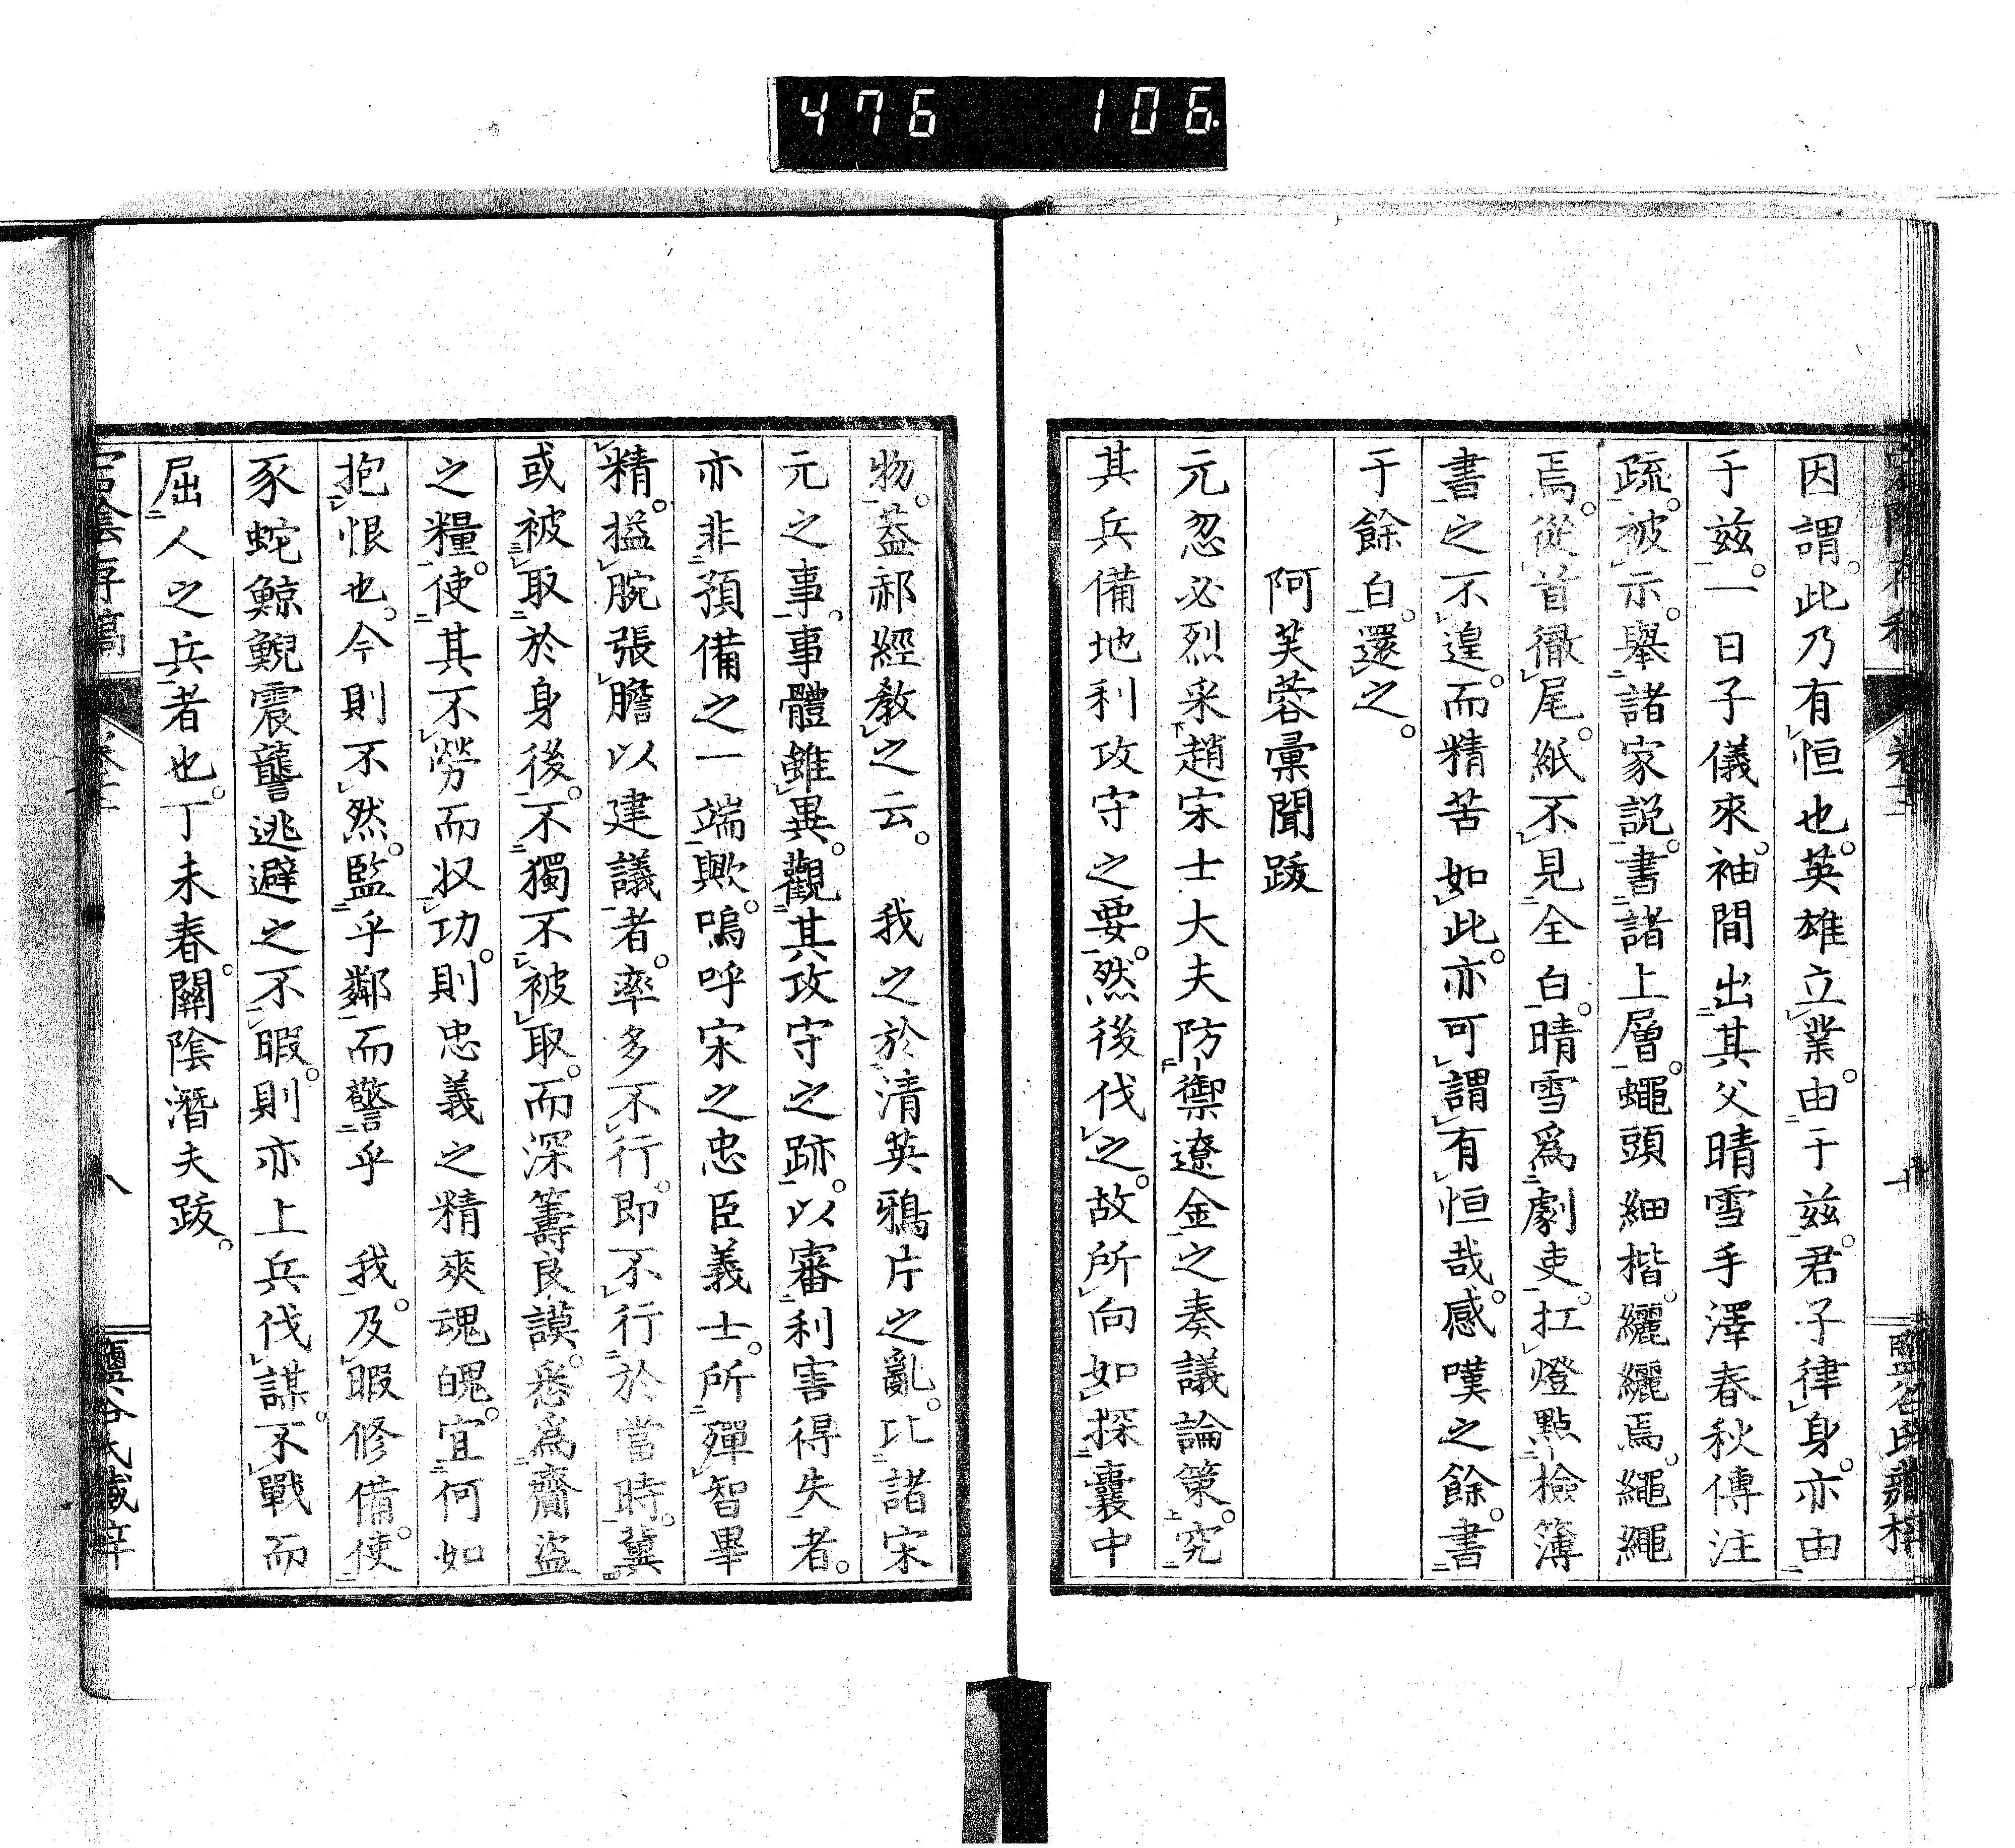 476 106
因謂。此乃有恒也。英雄立業。由于茲。君子律身。亦由
于茲。一日子儀來。袖間出其父晴雪手澤春秋傳注
疏。被示。擧諸家説。書諸上層。蠅頭細楷。纚纚焉。繩繩
焉。從首徹尾。紙不見全白。晴雪爲劇吏。扛燈點檢簿
書之不遑。而精苦如此。亦可謂有恒哉。感嘆之餘。書
于餘白。還之。
阿芙蓉彙聞跋
元忽必烈采趙宋士大夫防禦遼金之奏議論策。究
其兵備地利攻守之要。然後伐之。故所向如探囊中
物。葢祁經敎之云。 我之於清英鴉片之亂。比諸宋
元之事。事體雖異。觀其攻守之跡。以審利害得失者。
亦非預備之一端歟。嗚呼宋之忠臣義士。所殫智畢
精。搤腕張膽以建議者。率多不行。卽不行於當時。冀
或被取於身後。不獨不被取。而深籌良謨。悉爲齎盜
之糧。使其不勞而収功。則忠義之精爽魂魄。宜何如
抱恨也。今則不然。監乎鄰而警乎 我。及暇修備。使
豕蛇鯨鯢震讋逃避之不暇。則亦上兵伐謀。不戰而
屈人之兵者也。丁未春。關陰潛夫跋。
宕陰存稿
八
鹽谷氏藏梓